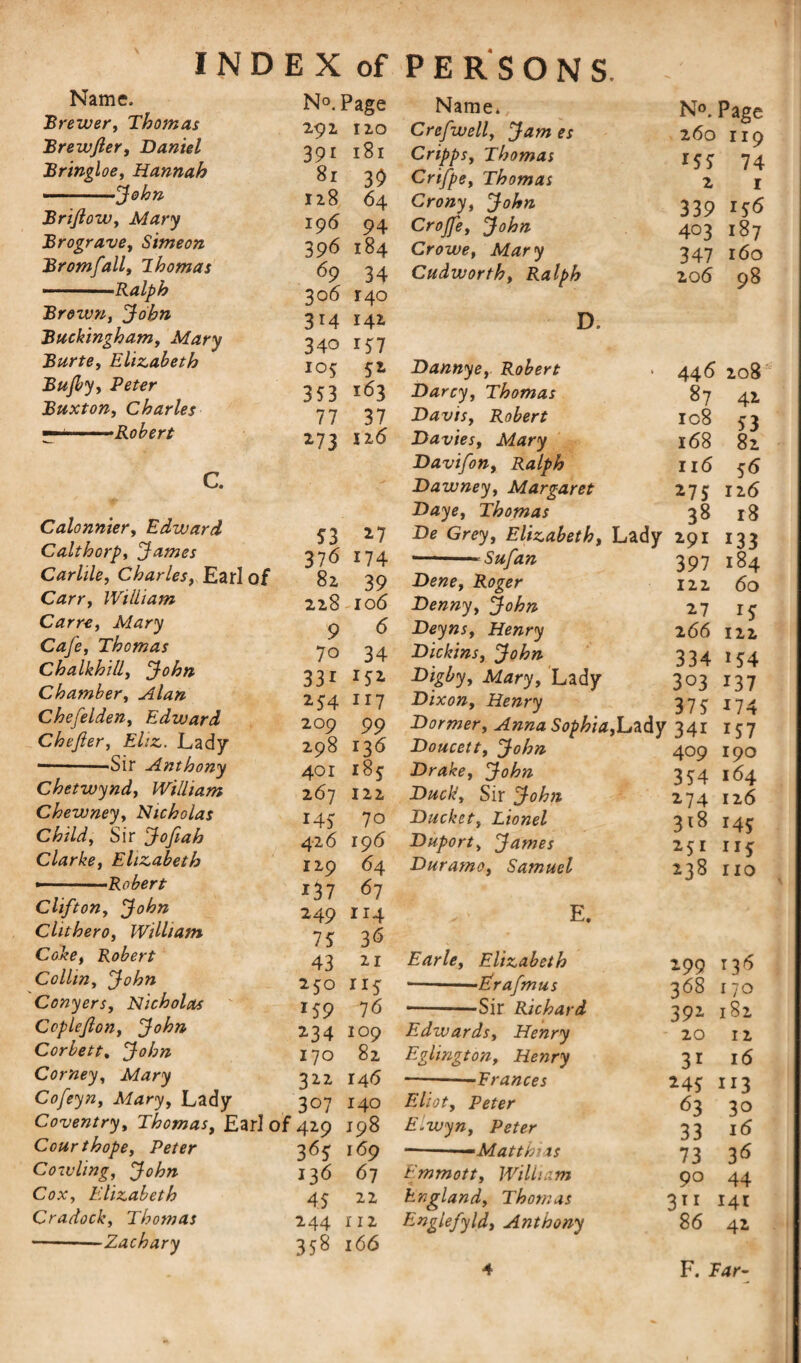 INDEX of PERSONS.
Name. No. Page
Brewer, Thomas 292 120
Brewſter, Daniel 391 181
Bringloe, Hannah 81 39
———John 128 64
Briſtow, Mary 196 94
Brograve, Simeon 396 184
Bromfall, Thomas 69 34
———Ralph 306 140
Brown, John 314 142
Buckingham, Mary 340 157
Burte, Elizabeth 105 52
Buſby, Peter 353 163
Buxton, Charles 77 37
———Robert 273 126
C.
Calonnier, Edward 53 27
Calthorp, James 376 174
Carlile, Charles, Earl of 82 39
Carr, William 228 106
Carre, Mary 9 6
Caſe, Thomas 70 34
Chalkhill, John 331 152
Chamber, Alan 254 117
Cheſelden, Edward 209 99
Cheſter, Eliz. Lady 298 136
———Sir Anthony 401 185
Chetwynd, William 267 122
Chewney, Nicholas 145 70
Child, Sir Joſiah 426 196
Clarke, Elizabeth 129 64
———Robert 137 67
Clifton, John 249 114
Clithero, William 75 36
Coke, Robert 43 21
Collin, John 250 115
Conyers, Nicholas 159 76
Copleſton, John 234 109
Corbett, John 170 82
Corney, Mary 322 146
Coſeyn, Mary, Lady 307 140
Coventry, Thomas, Earl of 429 198
Courthope, Peter 365 169
Cowling, John 136 67
Cox, Elizabeth 45 22
Cradock, Thomas 244 112
———Zachary 358 166
Name. No. Page
Creſwell, James 260 119
Cripps, Thomas 155 74
Criſpe, Thomas 2 1
Crony, John 339 156
Croſſe, John 403 187
Crowe, Mary 347 160
Cudworth, Ralph 206 98
D.
Dannye, Robert 446 208
Darcy, Thomas 87 42
Davis, Robert 108 53
Davies, Mary 168 82
Daviſon, Ralph 116 56
Dawney, Margaret 275 126
Daye, Thomas 38 18
De Grey, Elizabeth, Lady 291 133
———Suſan 397 184
Dene, Roger 122 60
Denny, John 27 15
Deyns, Henry 266 122
Dickins, John 334 154
Digby, Mary, Lady 303 137
Dixon, Henry 375 174
Dormer, Anna Sophia, Lady 341 157
Doucett, John 409 190
Drake, John 354 164
Duck, Sir John 274 126
Ducket, Lionel 318 145
Duport, James 251 115
Duramo, Samuel 238 110
E.
Earle, Elizabeth 299 136
———Eraſmus 368 170
———Sir Richard 392 182
Edwards, Henry 20 12
Eglington, Henry 31 16
———Frances 245 113
Eliot, Peter 63 30
Elwyn, Peter 33 16
———Matthias 73 36
Emmott, William 90 44
England, Thomas 311 141
Englefyld, Anthony 86 42
4 F. Far-